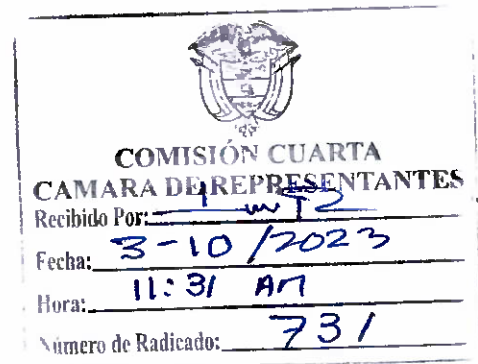 COMISIÓN CUARTA
CAMARA DE REPRESENTANTES
Recibido Por:
Fecha: 3-10/2023
Hora: 11:31 AM
Número de Radicado: 731